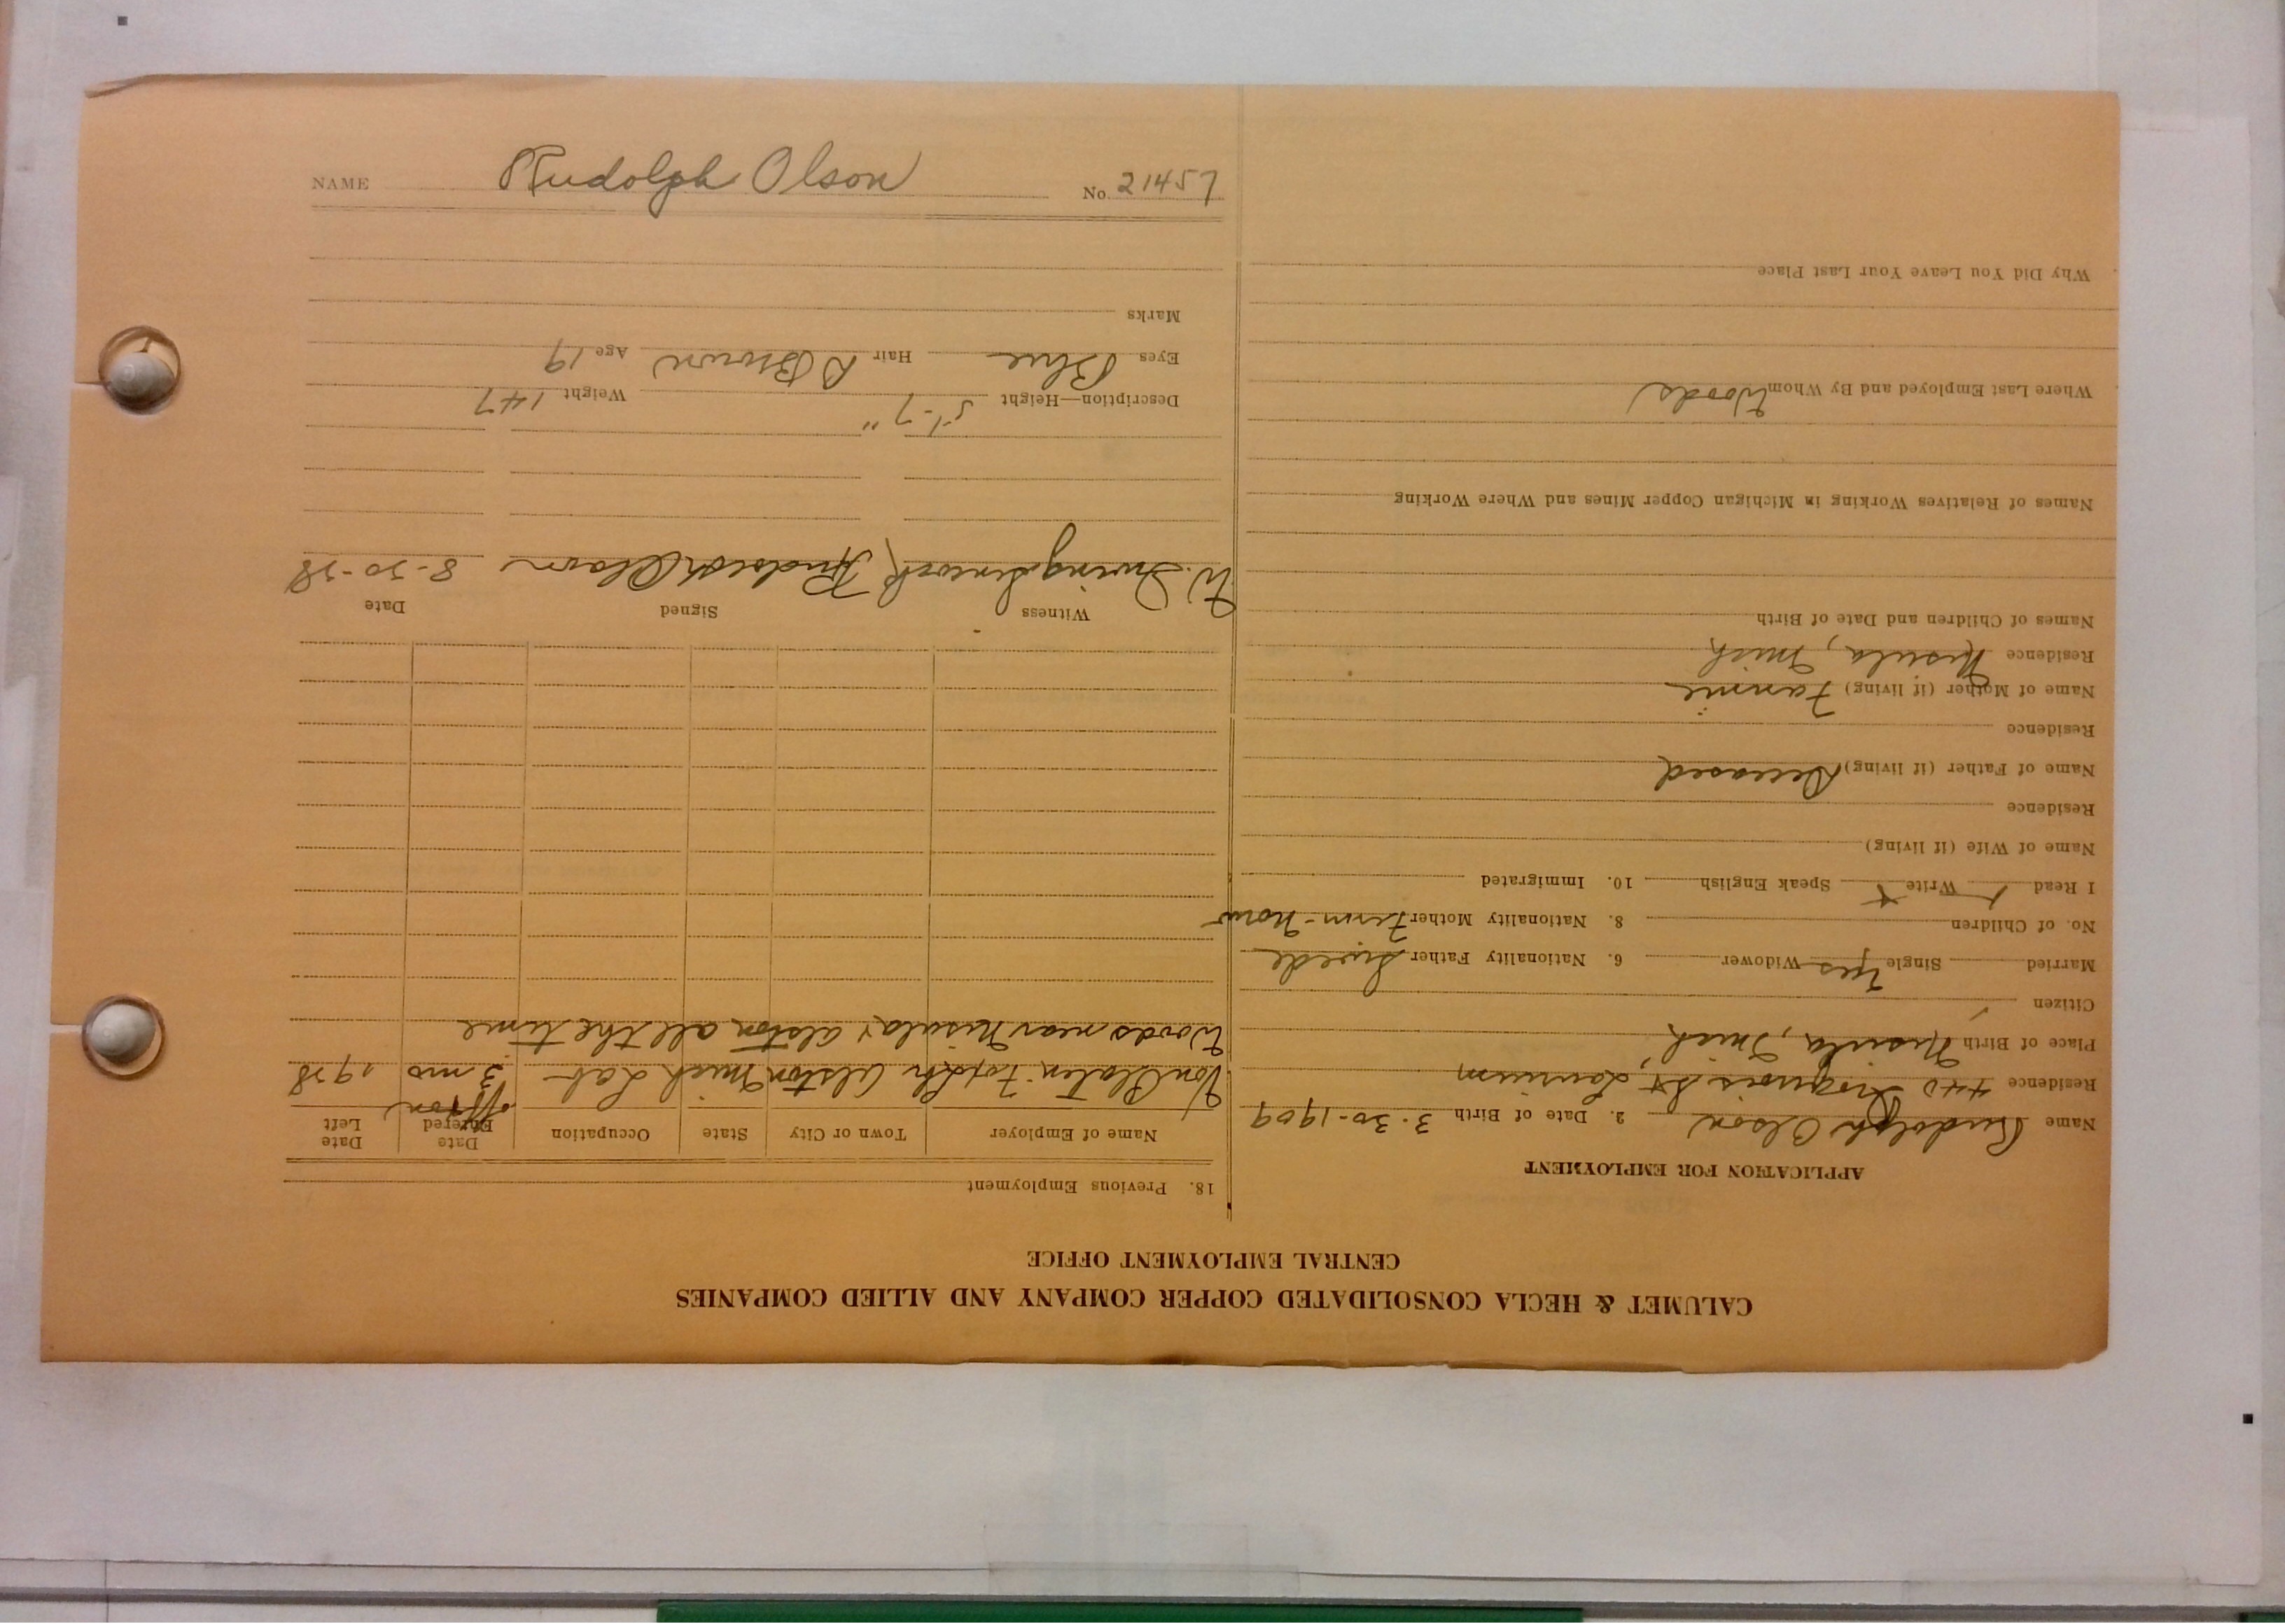 NAME Rudolph Olson No. 21457
CALUMET & HECLA CONSOLIDATED COPPER COMPANY AND ALLIED COMPANIES
CENTRAL EMPLOYMENT OFFICE
APPLICATION FOR EMPLOYMENT
Name Rudolph Olson 2. Date of Birth 3-30-1909
Residence 440 Iroquois St, Laurium
Place of Birth Nisula, Mich
Citizen
Married Single Yes Widower 6. Nationality Father Swede
No. of Children 8. Nationality Mother Finn-Norw
I Read Write Speak English 10. Immigrated
Name of Wife (if living)
Residence
Name of Father (if living) Deceased
Residence
Name of Mother (if living) Fannie
Residence Nisula, Mich
Names of Children and Date of Birth
Names of Relatives Working in Michigan Copper Mines and Where Working
Where Last Employed and By Whom Woods
Why Did You Leave Your Last Place
18. Previous Employment
Name of Employer Town or City State Occupation Date Entered Date Left
off & on
Von Platen Fox Alston Mich Lab 3 mo 1928
Woods near Nisula & Alston all the time
Witness Signed Date
W. Irving Rudolph Olson 8-30-28
Description—Height 5'-7" Weight 147
Eyes Blue Hair D Brown Age 19
Marks